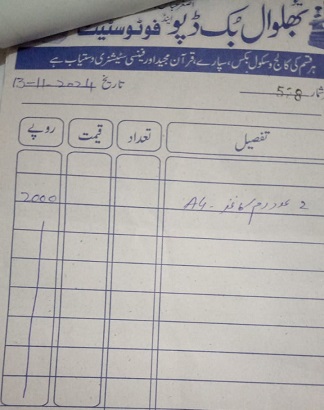 بھلوال بک ڈپو اینڈ فوٹوسٹیٹ
ہر قسم کی کالج و سکول بکس، سپارے، قرآن مجید اور فینسی سٹیشنری دستیاب ہے
578 تاریخ 13-11-2024
تفصیل تعداد قیمت روپے
2 عدد رم کاغذ A4 2000